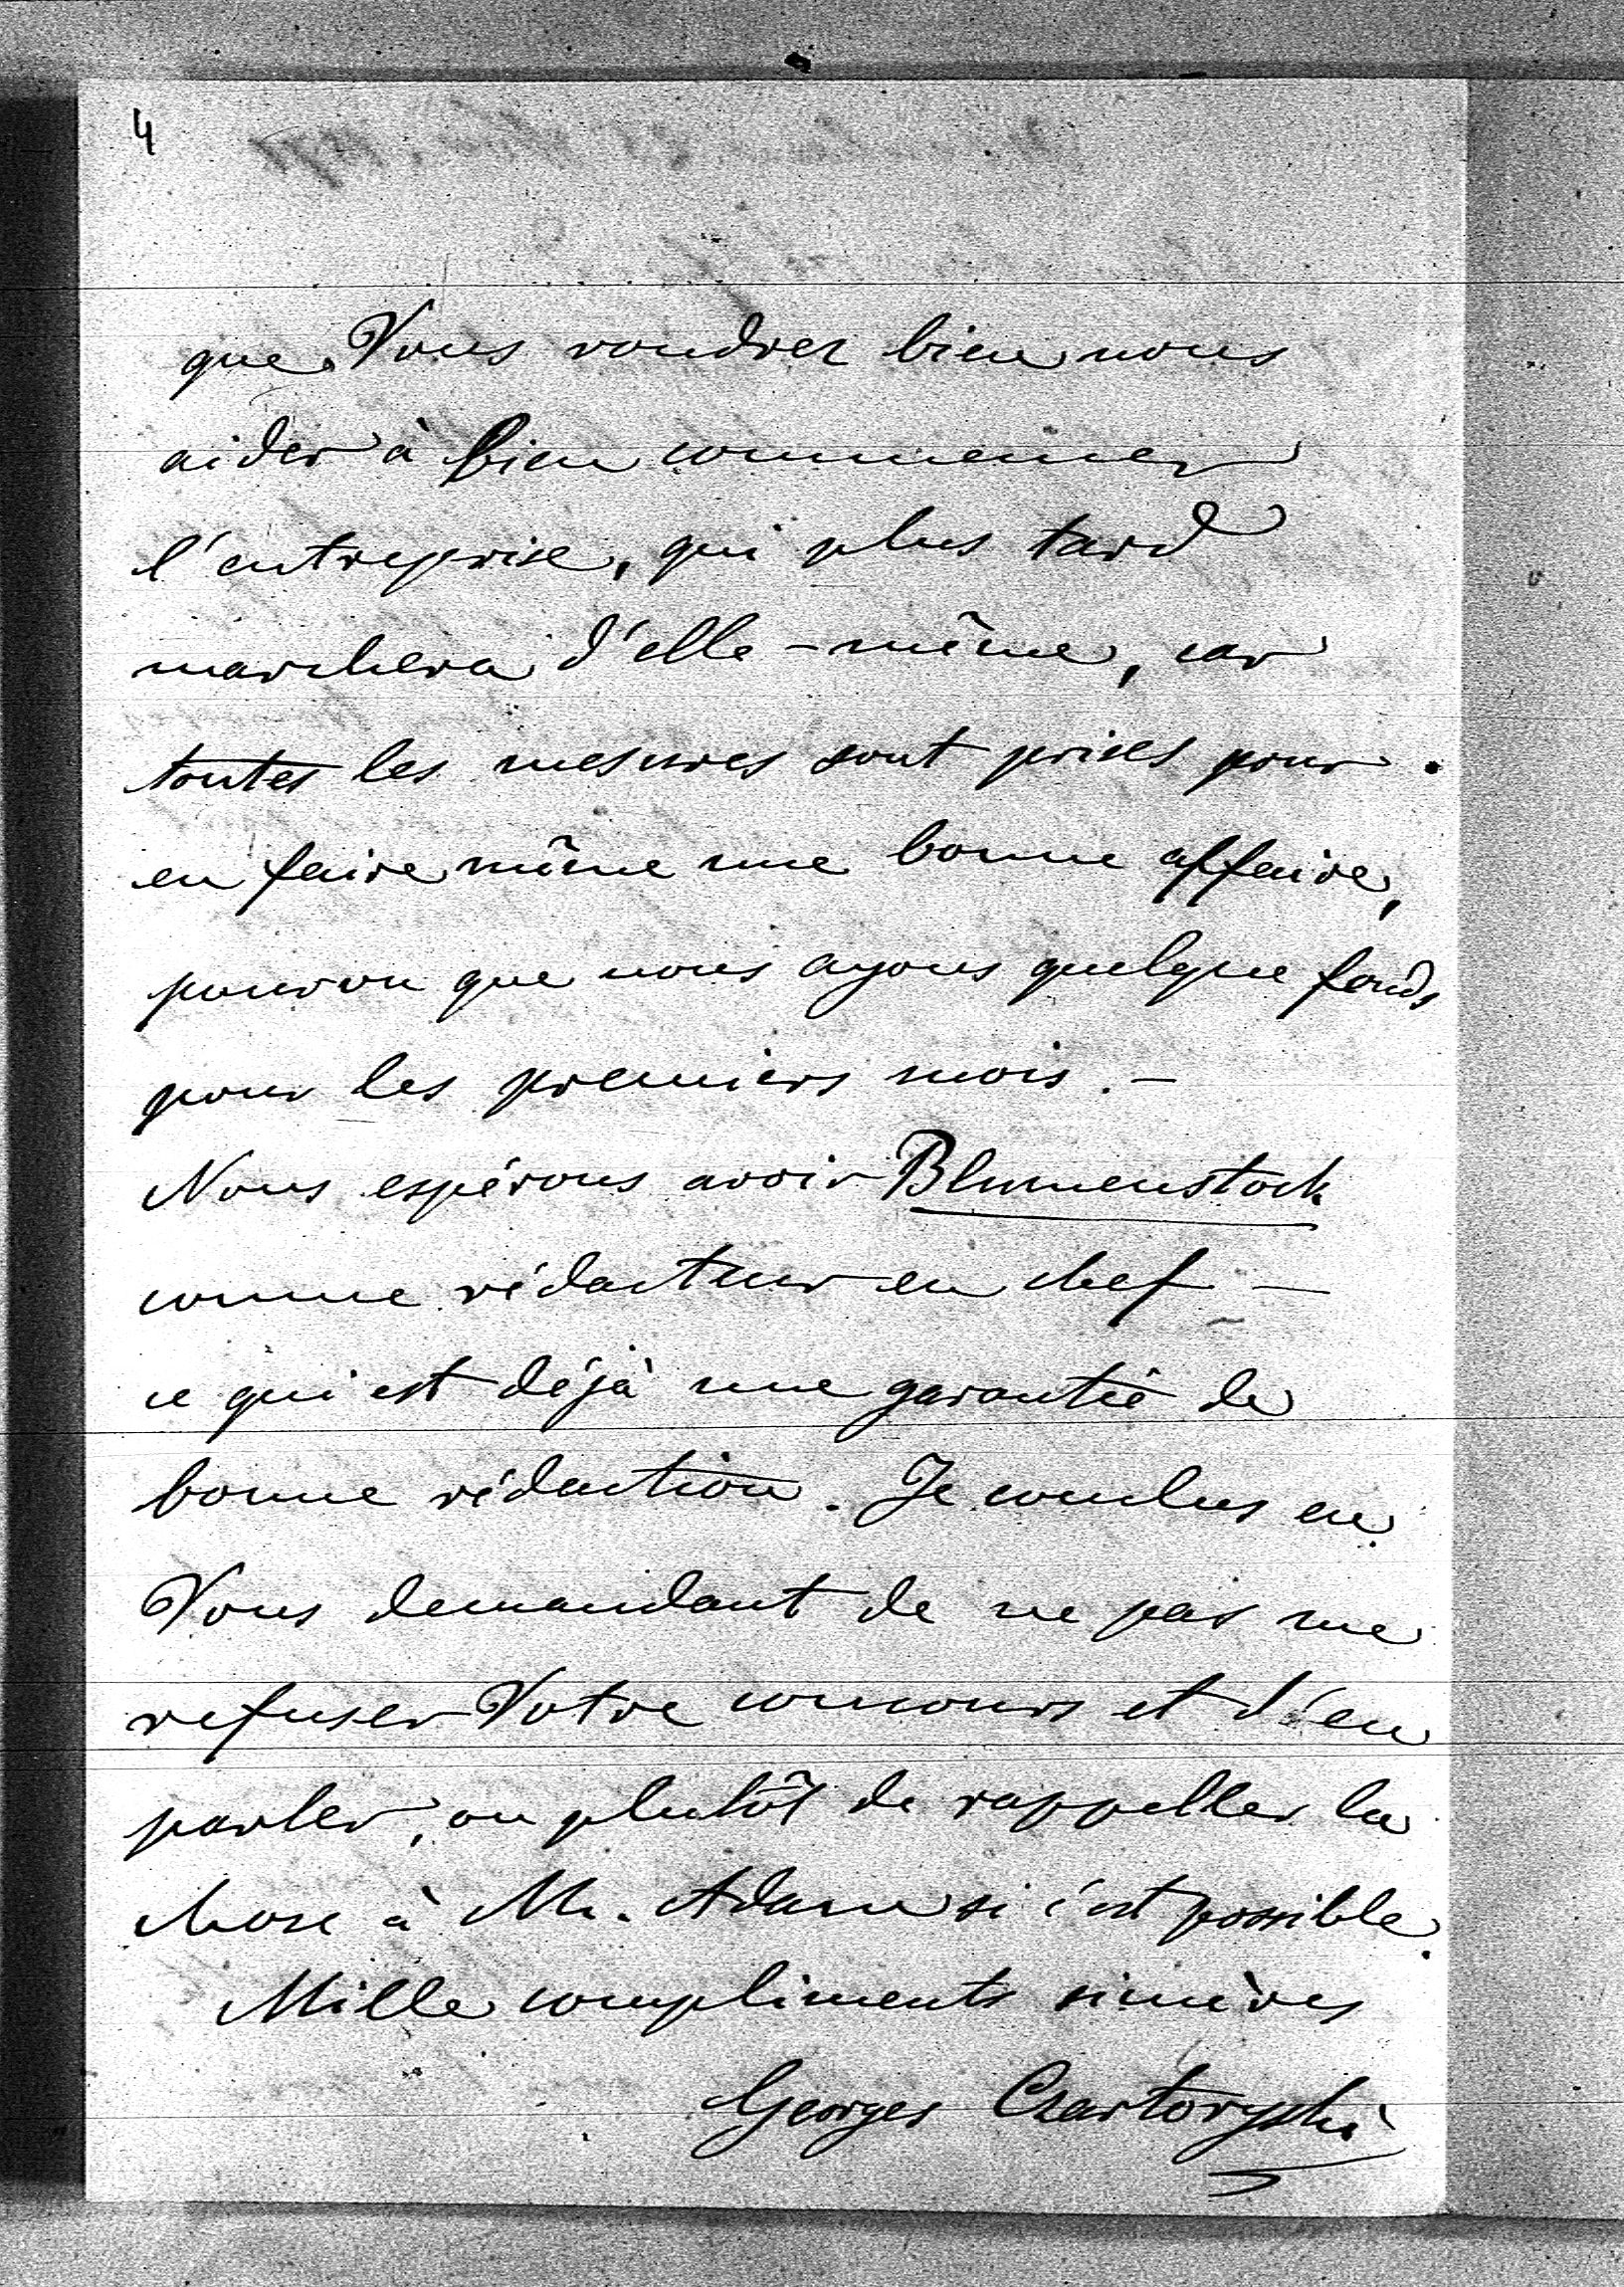 4
que Vous voudrez bien nous
aider à bien commencer
l'entreprise, qui plus tard
marchera d'elle-même, car
toutes les mesures sont prises pour
en faire même une bonne affaire,
pourvu que nous ayons quelque fonds
pour les premiers mois. —
Nous espérons avoir Blumenstock
comme rédacteur en chef —
ce qui est déjà une garantie de
bonne rédaction. Je conclus en
Vous demandant de ne pas me
refuser Votre concours et d'en
parler, ou plutôt de rappeller la
chose à Mr. Adam si c'est possible.
Mille compliments sincères
Georges Czartoryski